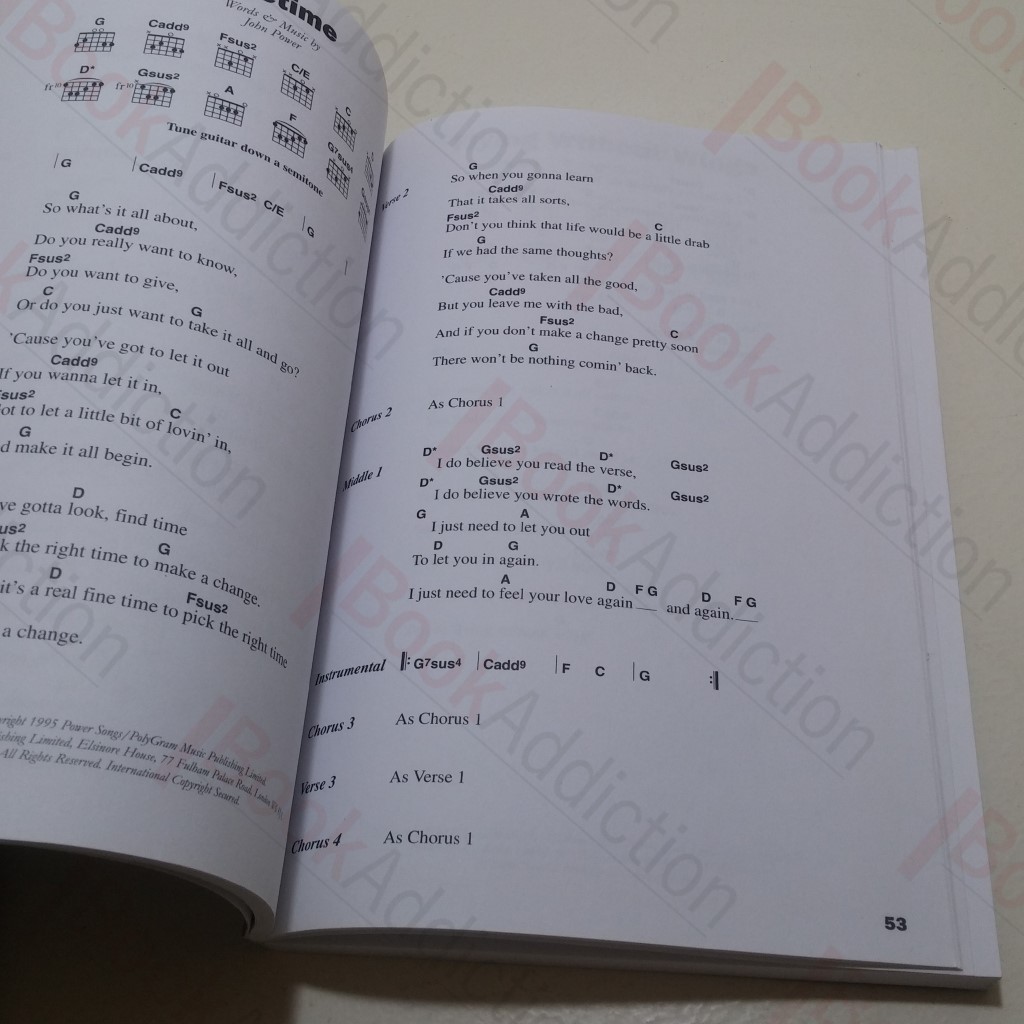 time
Words & Music by
John Power
G Cadd9 Fsus2 C/E C
D* Gsus2 A F G7sus4
fr10 fr10
Tune guitar down a semitone
G Cadd9 Fsus2 C/E G
G
So what's it all about,
Cadd9
Do you really want to know,
Fsus2
Do you want to give,
C G
Or do you just want to take it all and go?
'Cause you've got to let it out
Cadd9
If you wanna let it in,
sus2 C
ot to let a little bit of lovin' in,
G
d make it all begin.
D
ve gotta look, find time
us2 G
k the right time to make a change.
D Fsus2
it's a real fine time to pick the right time
a change.
right 1995 Power Songs/PolyGram Music Publishing Limited,
shing Limited, Elsinore House, 77 Fulham Palace Road, London
All Rights Reserved. International Copyright Secured.
Verse 2
G
So when you gonna learn
Cadd9
That it takes all sorts,
Fsus2 C
Don't you think that life would be a little drab
G
If we had the same thoughts?
'Cause you've taken all the good,
Cadd9
But you leave me with the bad,
Fsus2 C
And if you don't make a change pretty soon
G
There won't be nothing comin' back.
Chorus 2 As Chorus 1
Middle 1
D* Gsus2 D* Gsus2
I do believe you read the verse,
D* Gsus2 D* Gsus2
I do believe you wrote the words.
G A
I just need to let you out
D G
To let you in again.
A D F G D F G
I just need to feel your love again and again.
Instrumental G7sus4 Cadd9 F C G
Chorus 3 As Chorus 1
Verse 3 As Verse 1
Chorus 4 As Chorus 1
53
BookAddiction